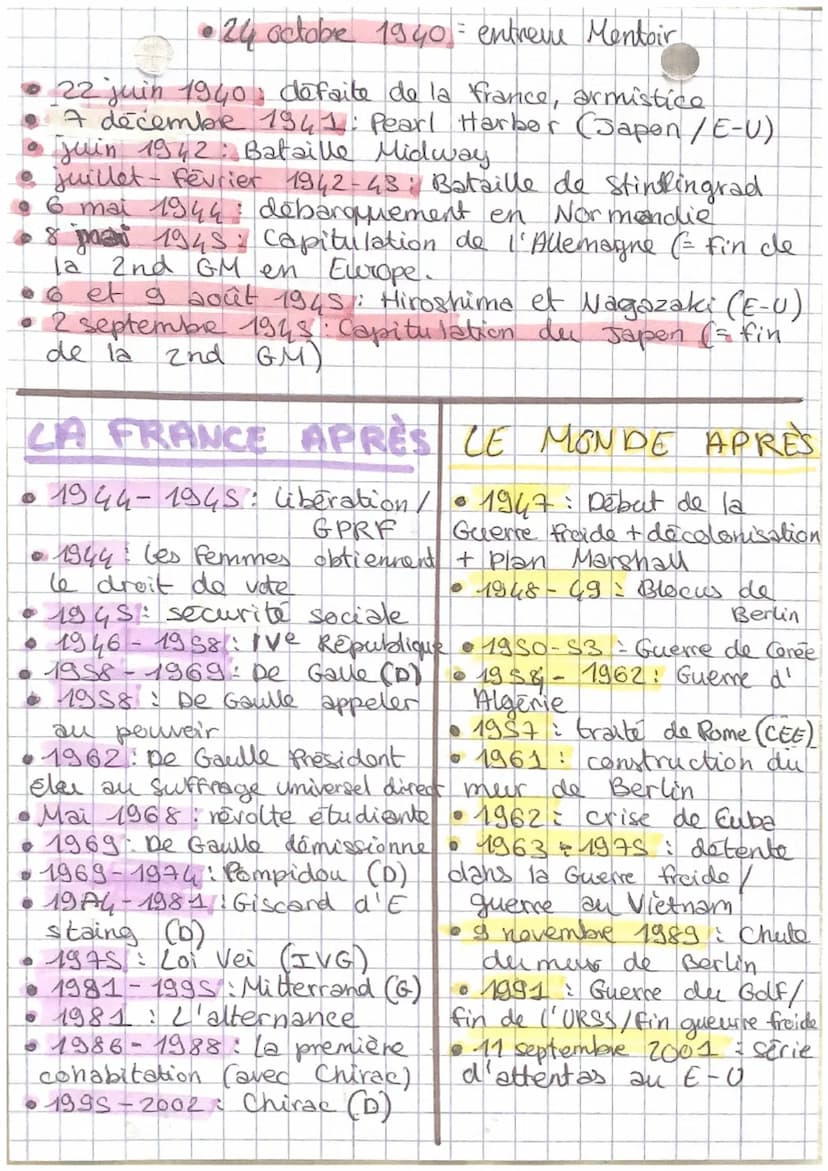 • 24 octobre 1940 = entrevue Mentoir
• 22 juin 1940 : défaite de la france, armistice
• 7 décembre 1941 : Pearl Harbor (Japon / E-U)
• juin 1942 : Bataille Midway
• juillet - février 1942-43 : Bataille de Stinlingrad
• 6 mai 1944 : débarquement en Normandie
• 8 mai 1945 : Capitulation de l'Allemagne (= fin de
la 2nd GM en Europe.
• 6 et 9 août 1945 : Hiroshima et Nagazaki (E-U)
• 2 septembre 1945 : Capitulation du Japon (= fin
de la 2nd GM)
LA FRANCE APRÈS
• 1944-1945 : libération /
GPRF
• 1944 : les femmes obtiennent
le droit de vote
• 1945 : sécurité sociale
• 1946 - 1958 : IVe République
• 1958 - 1969 : De Gaule (D)
• 1958 : De Gaulle appeler
au pouvoir
• 1962 : De Gaulle Président
élu au suffrage universel direct
• Mai 1968 : révolte étudiante
• 1969 : De Gaulle démissionne
• 1969-1974 : Pompidou (D)
• 1974-1981 : Giscard d'E
staing (D)
• 1975 : Loi Vei (IVG)
• 1981-1995 : Mitterrand (G)
• 1981 : L'alternance
• 1986 - 1988 : la première
cohabitation (avec Chirac)
• 1995-2002 : Chirac (D)
LE MONDE APRÈS
• 1947 : Début de la
Guerre froide + décolonisation
+ Plan Marshall
• 1948 - 49 : Blocus de
Berlin
• 1950-53 : Guerre de Corée
• 1954 - 1962 : Guerre d'
Algérie
• 1957 : traité de Rome (CEE)
• 1961 : construction du
mur de Berlin
• 1962 : crise de Cuba
• 1963 - 1975 : détente
dans la Guerre froide /
guerre au Vietnam
• 9 novembre 1989 : Chute
du mur de Berlin
• 1991 : Guerre du Golf /
fin de l'URSS / fin gueurre froide
• 11 septembre 2001 : série
d'attentas au E-U